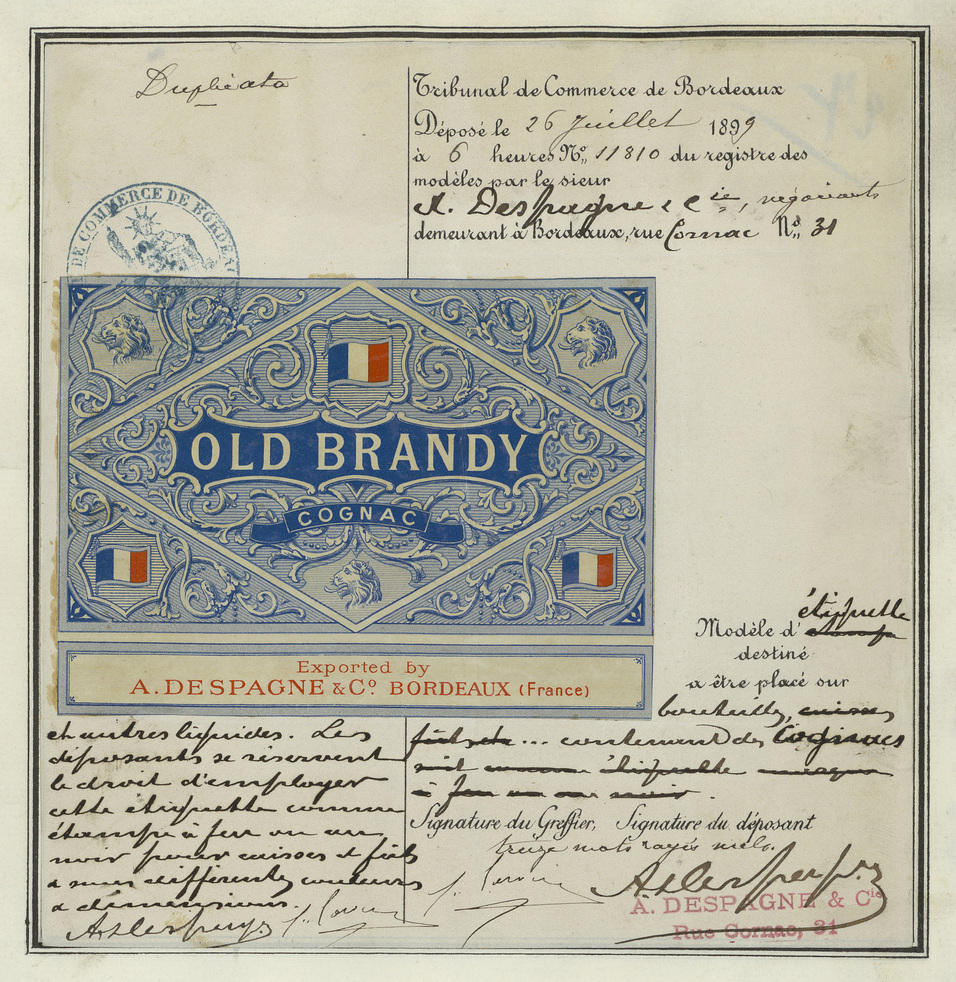 Duplicata
Tribunal de Commerce de Bordeaux
Déposé le 26 Juillet 1899
à 6 heures No,, 11810 du registre des
modèles par le sieur
A. Despagne & Cie, négociants
demeurant à Bordeaux, rue Cornac No,, 31
DE COMMERCE DE BORDEAU
OLD BRANDY
COGNAC
Exported by
A. DESPAGNE & Co. BORDEAUX (France)
étiquette
Modèle d' estampe
destiné
a être placé sur
bouteilles, caisses
fûts etc... contenant des Cognacs
soit comme étiquette marque
à feu ou au noir.
et autres liquides. Les
déposants se réservent
le droit d'employer
cette étiquette comme
étampe à feu ou au
noir pour caisses et fûts
& sous différentes couleurs
& dimensions.
Signature du Greffier, Signature du déposant
treize mots rayés nuls.
A. DESPAGNE & Cie
Rue Cornac, 31